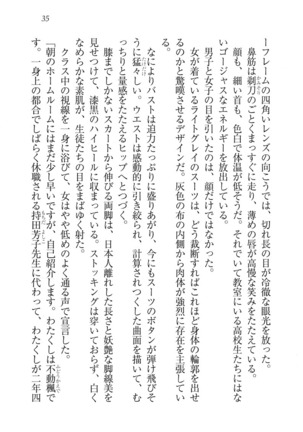 35
ーフレームの四角いレンズの向こうでは、切れ長の目が冷徹な眼光を放った。
鼻筋は剃刀のごとくまっすぐに走り、薄めの唇が高慢な笑みをたたえている。
顔も、細い首も、色白で体温が低そうだ。それでいて教室にいる高校生たちには、
ゴージャスなエネルギーを放出している。
男子と女子の目を引いたのは、顔だけではなかった。
女が着ているライトグレイのスーツは、どう裁断すればこれほど身体の輪郭を出せ
るのかと驚嘆させるデザインだ。灰色の布の内側から肉体が強烈に存在を主張してい
る。
なによりバストは迫力たっぷりに盛りあがり、今にもスーツのボタンが弾け飛びそ
うに猛々しい。ウエストは感動的に引き絞られ、計算されつくした曲面を描いて、む
っちりと量感をたたえるヒップへとつづく。
膝までしかないスカートから伸びる両脚は、日本人離れした長さと妖艶な脚線美を
見せつけて、漆黒のハイヒールに収まっている。ストッキングは穿いておらず、白く
なめらかな素肌が、生徒たちの目をまばゆく射た。
クラス中の視線を一身に浴びて、女はやや低めのよく通る声で宣言した。
「朝のホームルームにはまだ少し早いですが、自己紹介します。わたくしは不動楓で
す。一身上の都合でしばらく休職される持田芳子先生に代わって、わたくしが二年四